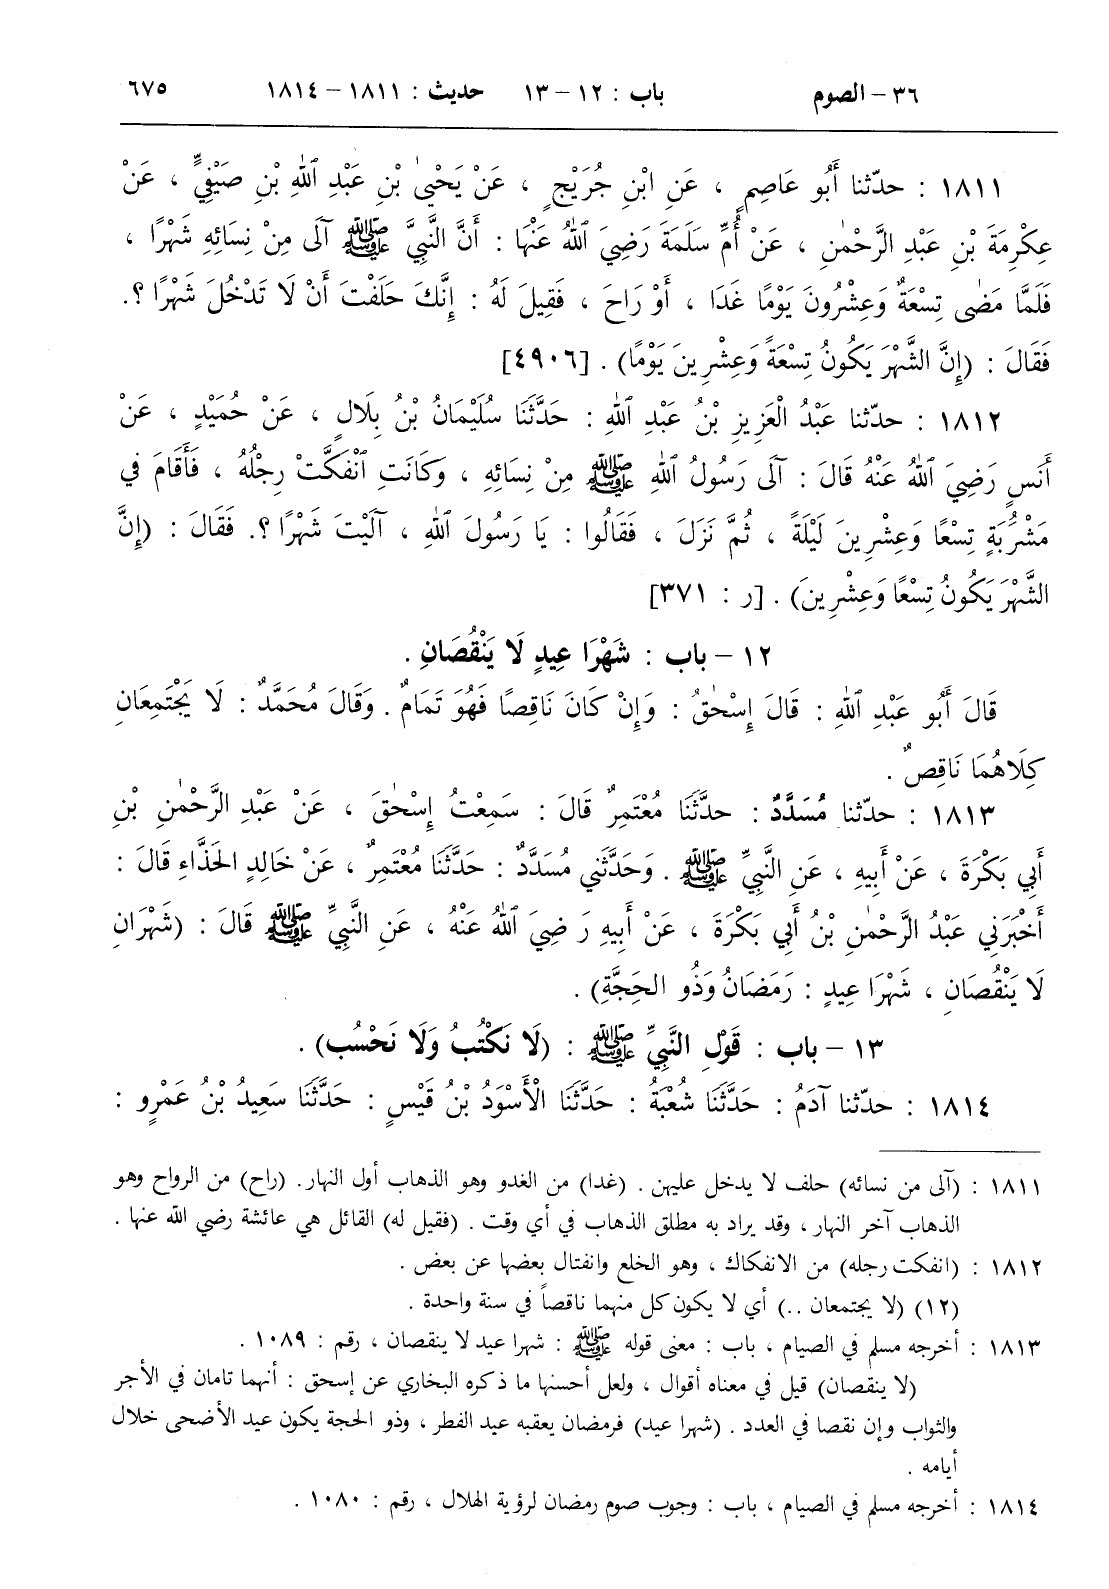 ٣٦ – الصوم باب : ١٢ – ١٣ حديث : ١٨١١ – ١٨١٤ ٦٧٥
١٨١١ : حدّثنا أَبُو عَاصِمٍ ، عَنِ ابْنِ جُرَيْجٍ ، عَنْ يَحْيىٰ بْنِ عَبْدِ اللهِ بْنِ صَيْفِيٍّ ، عَنْ
عِكْرِمَةَ بْنِ عَبْدِ الرَّحْمٰنِ ، عَنْ أُمِّ سَلَمَةَ رَضِيَ اللهُ عَنْهَا : أَنَّ النَّبِيَّ ﷺ آلَى مِنْ نِسَائِهِ شَهْرًا ،
فَلَمَّا مَضٰى تِسْعَةٌ وَعِشْرُونَ يَوْمًا غَدَا ، أَوْ رَاحَ ، فَقِيلَ لَهُ : إِنَّكَ حَلَفْتَ أَنْ لَا تَدْخُلَ شَهْرًا ؟.
فَقَالَ : (إِنَّ الشَّهْرَ يَكُونُ تِسْعَةً وَعِشْرِينَ يَوْمًا) . [٤٩٠٦]
١٨١٢ : حدّثنا عَبْدُ الْعَزِيزِ بْنُ عَبْدِ اللهِ : حَدَّثَنَا سُلَيْمَانُ بْنُ بِلَالٍ ، عَنْ حُمَيْدٍ ، عَنْ
أَنَسٍ رَضِيَ اللهُ عَنْهُ قَالَ : آلَى رَسُولُ اللهِ ﷺ مِنْ نِسَائِهِ ، وَكَانَتِ ٱنْفَكَّتْ رِجْلُهُ ، فَأَقَامَ فِي
مَشْرُبَةٍ تِسْعًا وَعِشْرِينَ لَيْلَةً ، ثُمَّ نَزَلَ ، فَقَالُوا : يَا رَسُولَ اللهِ ، آلَيْتَ شَهْرًا ؟. فَقَالَ : (إِنَّ
الشَّهْرَ يَكُونُ تِسْعًا وَعِشْرِينَ) . [ر : ٣٧١]
١٢ – باب : شَهْرَا عِيدٍ لَا يَنْقُصَانِ .
قَالَ أَبُو عَبْدِ اللهِ : قَالَ إِسْحٰقُ : وَإِنْ كَانَ نَاقِصًا فَهُوَ تَمَامٌ . وَقَالَ مُحَمَّدٌ : لَا يَجْتَمِعَانِ
كِلَاهُمَا نَاقِصٌ .
١٨١٣ : حدّثنا مُسَدَّدٌ : حدَّثَنَا مُعْتَمِرٌ قَالَ : سَمِعْتُ إِسْحٰقَ ، عَنْ عَبْدِ الرَّحْمٰنِ بْنِ
أَبِي بَكْرَةَ ، عَنْ أَبِيهِ ، عَنِ النَّبِيِّ ﷺ . وَحَدَّثَنِي مُسَدَّدٌ : حَدَّثَنَا مُعْتَمِرٌ ، عَنْ خَالِدٍ الحَذَّاءِ قَالَ :
أَخْبَرَنِي عَبْدُ الرَّحْمٰنِ بْنُ أَبِي بَكْرَةَ ، عَنْ أَبِيهِ رَضِيَ اللهُ عَنْهُ ، عَنِ النَّبِيِّ ﷺ قَالَ : (شَهْرَانِ
لَا يَنْقُصَانِ ، شَهْرَا عِيدٍ : رَمَضَانُ وَذُو الحَِجَّةِ) .
١٣ – باب : قَوْلِ النَّبِيِّ ﷺ : (لَا نَكْتُبُ وَلَا نَحْسُبُ) .
١٨١٤ : حدّثنا آدَمُ : حَدَّثَنَا شُعْبَةُ : حَدَّثَنَا الْأَسْوَدُ بْنُ قَيْسٍ : حَدَّثَنَا سَعِيدُ بْنُ عَمْرٍو :
١٨١١ : (آلى من نسائه) حلف لا يدخل عليهن . (غدا) من الغدو وهو الذهاب أول النهار. (راح) من الرواح وهو
الذهاب آخر النهار ، وقد يراد به مطلق الذهاب في أي وقت . (فقيل له) القائل هي عائشة رضي الله عنها .
١٨١٢ : (انفكت رجله) من الانفكاك ، وهو الخلع وانفتال بعضها عن بعض .
(١٢) (لا يجتمعان ..) أي لا يكون كل منهما ناقصاً في سنة واحدة .
١٨١٣ : أخرجه مسلم في الصيام ، باب : معنى قوله ﷺ : شهرا عيد لا ينقصان ، رقم : ١٠٨٩ .
(لا ينقصان) قيل في معناه أقوال ، ولعل أحسنها ما ذكره البخاري عن إسحق : أنهما تامان في الأجر
والثواب وإن نقصا في العدد . (شهرا عيد) فرمضان يعقبه عيد الفطر ، وذو الحجة يكون عيد الأضحى خلال
أيامه .
١٨١٤ : أخرجه مسلم في الصيام ، باب : وجوب صوم رمضان لرؤية الهلال ، رقم : ١٠٨٠ .